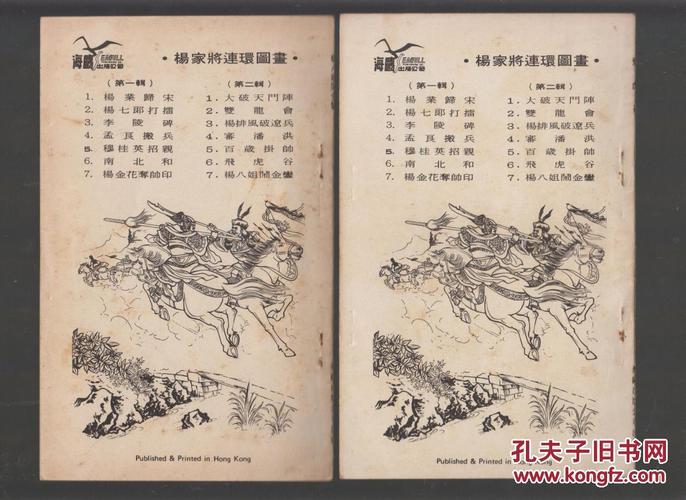 海鷗
SEAGULL
出版公司
·楊家將連環圖畫·
(第一輯)
1. 楊業歸宋
2. 楊七郎打擂
3. 李陵碑
4. 孟良搬兵
5. 穆桂英招親
6. 南北和
7. 楊金花奪帥印
(第二輯)
1. 大破天門陣
2. 雙龍會
3. 楊排風破遼兵
4. 審潘洪
5. 百歲掛帥
6. 飛虎谷
7. 楊八姐鬧金鑾
Published & Printed in Hong Kong
海鷗
SEAGULL
出版公司
·楊家將連環圖畫·
(第一輯)
1. 楊業歸宋
2. 楊七郎打擂
3. 李陵碑
4. 孟良搬兵
5. 穆桂英招親
6. 南北和
7. 楊金花奪帥印
(第二輯)
1. 大破天門陣
2. 雙龍會
3. 楊排風破遼兵
4. 審潘洪
5. 百歲掛帥
6. 飛虎谷
7. 楊八姐鬧金鑾
Published & Printed in Hong Kong
孔夫子旧书网
www.kongfz.com